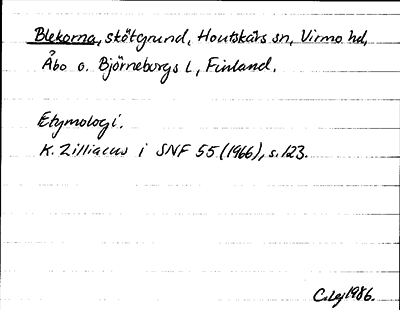 Blekorna, skötgrund, Houtskärs sn, Virmo hd,
Åbo o. Björneborgs L, Finland.
Etymologi.
K. Zilliacus i SNF 55 (1966), s. 123.
C. Lej 1986.